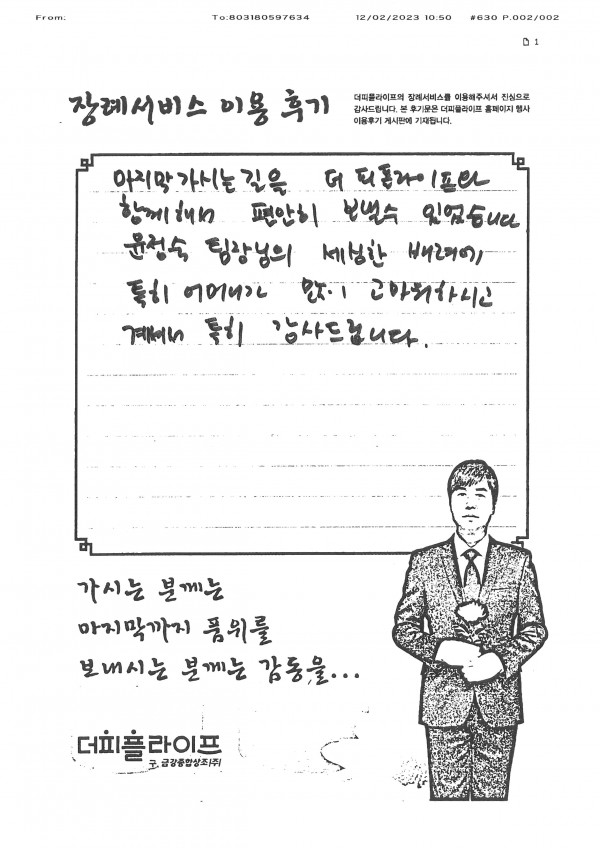 From: To:803180597634 12/02/2023 10:50 #630 P.002/002
1
장례서비스 이용 후기
더피플라이프의 장례서비스를 이용해주셔서 진심으로
감사드립니다. 본 후기문은 더피플라이프 홈페이지 행사
이용후기 게시판에 기재됩니다.
마지막 가시는 길을 더 피플라이프와
함께해서 편안히 보낼수 있었습니다
윤정숙 팀장님의 세심한 배려에,
특히 어머니가 고마워하시고
계셔서 특히 감사드립니다.
가시는 분께는
마지막까지 품위를
보내시는 분께는 감동을...
더피플라이프
구. 금강종합상조(주)